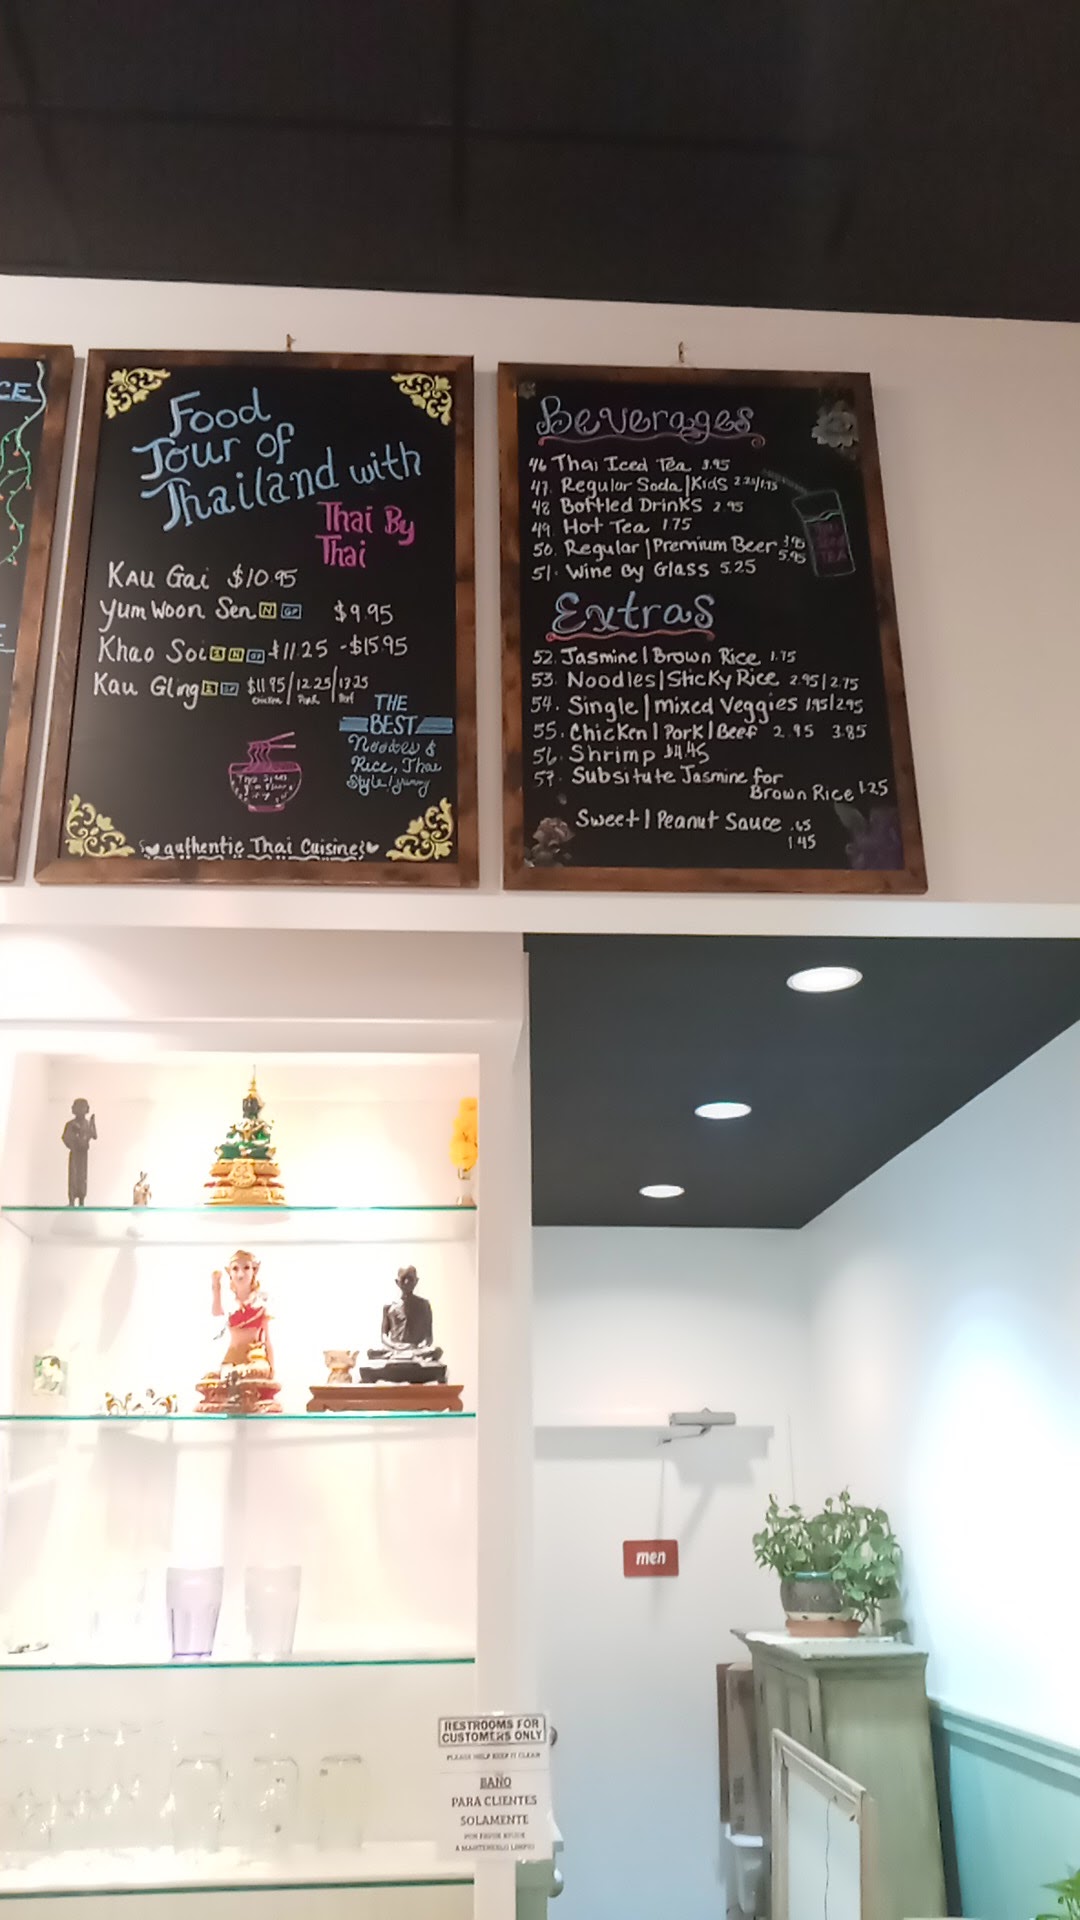 CE
Food
Tour of
Thailand with
Thai By
Thai
Kau Gai $10.95
Yum Woon Sen N GF $9.95
Khao Soi $11.25 - $15.95
Kau Gling $11.95/12.25/13.25
Chicken Pork Beef
THE
BEST
Noodles &
Rice, Thai
Style! yummy
authentic Thai Cuisine
Beverages
46 Thai Iced Tea 3.95
47. Regular Soda/Kids 2.25/1.75
48 Bottled Drinks 2.95
49. Hot Tea 1.75
50. Regular/Premium Beer 3.95
5.95
51. Wine By Glass 5.25
TEA
Extras
52. Jasmine/Brown Rice 1.75
53. Noodles/Sticky Rice 2.95/2.75
54. Single/mixed Veggies 1.95/2.95
55. Chicken/Pork/Beef 2.95 3.85
56. Shrimp $4.45
57. Subsitute Jasmine for
Brown Rice 1.25
Sweet/Peanut Sauce .65
1.45
men
RESTROOMS FOR
CUSTOMERS ONLY
PLEASE HELP KEEP IT CLEAN
BAÑO
PARA CLIENTES
SOLAMENTE
POR FAVOR AYUDE
A MANTENERLO LIMPIO